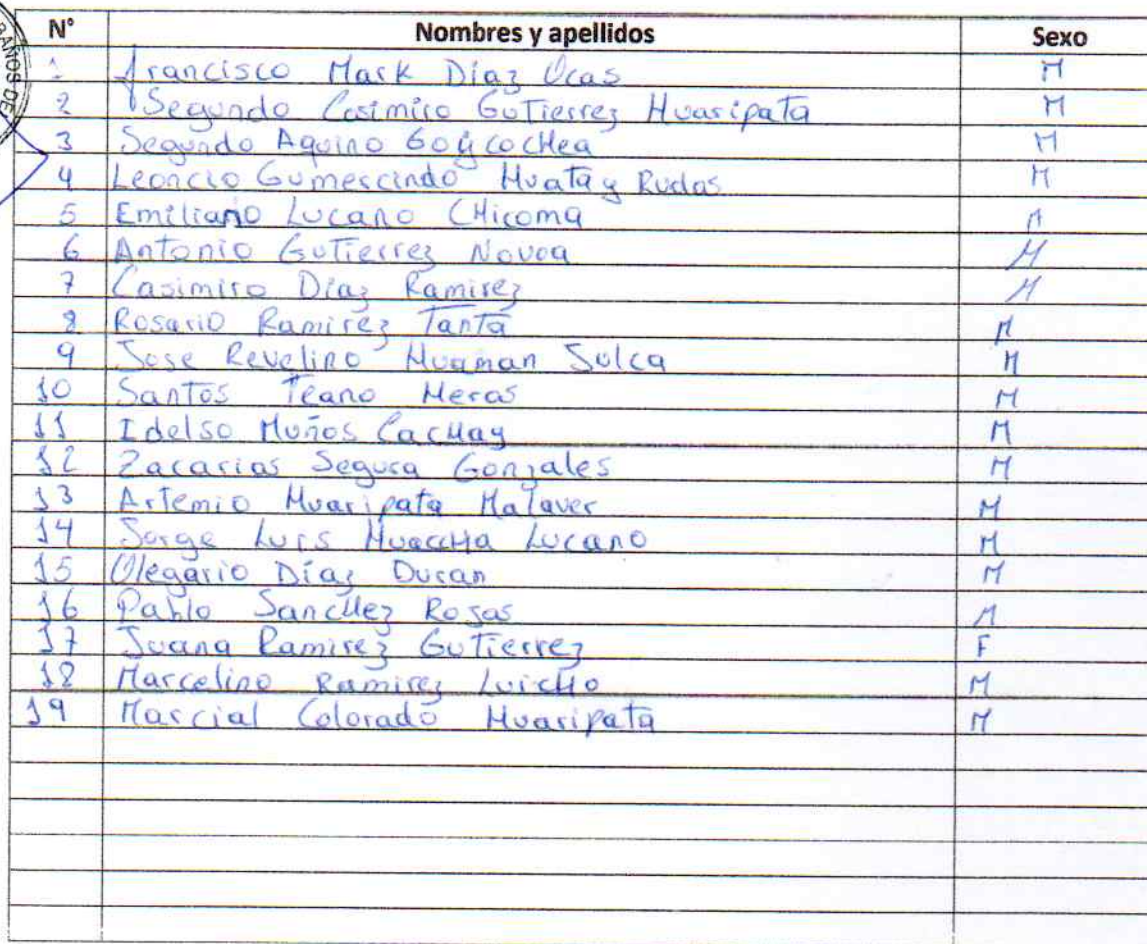 BAÑOS DE
N° Nombres y apellidos Sexo
1 Francisco Mark Díaz Ocas M
2 Segundo Casimiro Gutierrez Huaripata M
3 Segundo Aquino Goycochea M
4 Leoncio Gumercindo Huatay Rudas M
5 Emiliano Lucano Chicoma M
6 Antonio Gutierrez Novoa M
7 Casimiro Díaz Ramirez M
8 Rosario Ramirez Tanta M
9 Jose Revelino Huaman Sulca M
10 Santos Teano Heras M
11 Idelso Muños Cachay M
12 Zacarias Segura Gonzales M
13 Artemio Huaripata Malaver M
14 Jorge Luis Huaccha Lucano M
15 Olegario Díaz Duran M
16 Pablo Sanchez Rosas M
17 Juana Ramirez Gutierrez F
18 Marcelino Ramirez Luicho M
19 Marcial Colorado Huaripata M